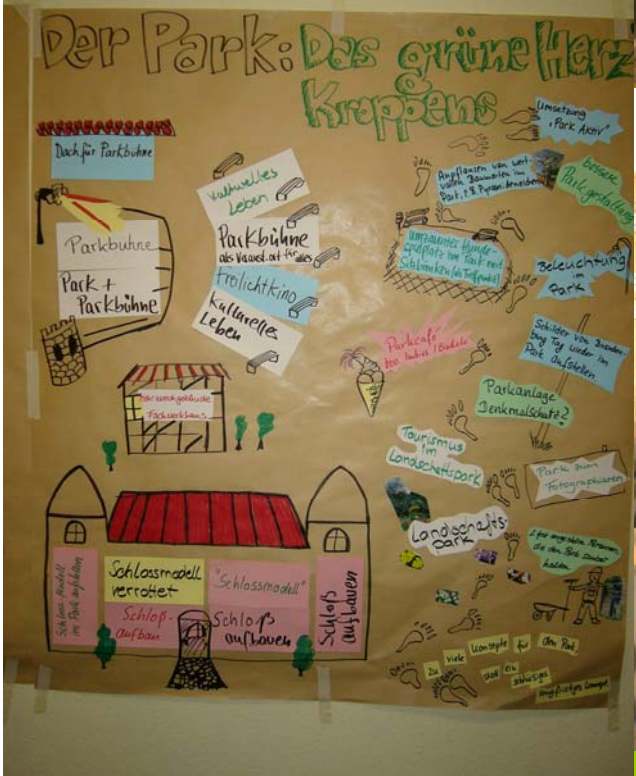 Der Park: Das grüne Herz
Kroppens
Dach für Parkbühne
Parkbühne
Park +
Parkbühne
kulturelles
Leben
Parkbühne
als Veranst.ort für alles
Freilichtkino
Kulturelles
Leben
Fachwerkhaus
Schloss Modell
im Park aufstellen
Schlossmodell
verrottet
"Schlossmodell"
Schloß-
aufbau
Schloß
aufbauen
Schloß
aufbauen
Umsetzung
"Park Aktiv"
Anpflanzen von wert-
vollen Baumarten im
Park, z.B.
bessere
Parkgestaltung
Umzäunter Hunde-
spielplatz im Park mit
Beleuchtung
im
Park
Parkcafé
Schilder von
Tag wieder im
Park aufstellen
Parkanlage
Denkmalschutz?
Tourismus
im
Landschaftspark
Park zum
Fotographieren
Landschafts-
park
angestellte Personen,
die den Park sauber
halten
Zu viele Konzepte für den Park,
statt ein